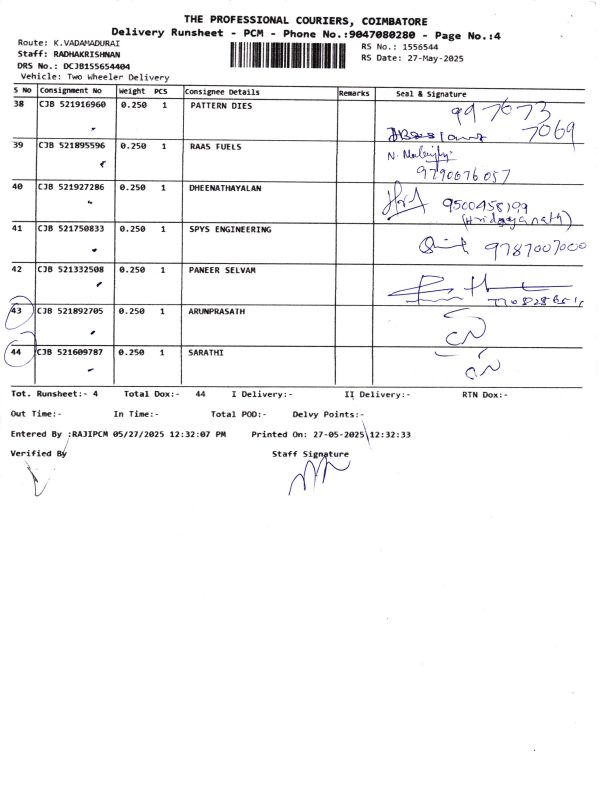 THE PROFESSIONAL COURIERS, COIMBATORE
Delivery Runsheet - PCM - Phone No.:9047080280 - Page No.:4
Route: K.VADAMADURAI
RS No.: 1556544
Staff: RADHAKRISHNAN
RS Date: 27-May-2025
DRS No.: DCJB155654404
Vehicle: Two Wheeler Delivery
S No Consignment No Weight PCS Consignee Details Remarks Seal & Signature
38 CJB 521916960 0.250 1 PATTERN DIES 997673
7069
39 CJB 521895596 0.250 1 RAAS FUELS
9790676057
40 CJB 521927286 0.250 1 DHEENATHAYALAN 9500458199
(Hridayanath)
41 CJB 521750833 0.250 1 SPYS ENGINEERING 9787007000
42 CJB 521332508 0.250 1 PANEER SELVAM
43 CJB 521892705 0.250 1 ARUNPRASATH
44 CJB 521609787 0.250 1 SARATHI
Tot. Runsheet:- 4 Total Dox:- 44 I Delivery:- II Delivery:- RTN Dox:-
Out Time:- In Time:- Total POD:- Delvy Points:-
Entered By :RAJIPCM 05/27/2025 12:32:07 PM Printed On: 27-05-2025 12:32:33
Verified By Staff Signature